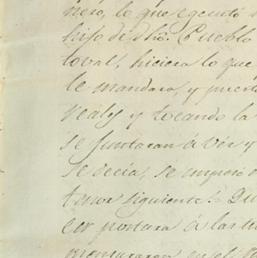 nero, lo que egecutó
hijo de dho. Pueblo
toval, hiciera lo que
le mandara, y puest
reales y tocando la
se juntaran á vér y
se decia, se impuso
tenor siguiente:
cer portara á las